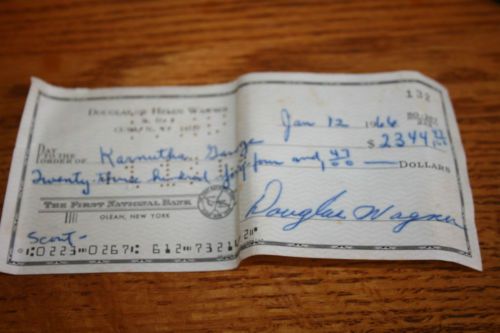 Douglas or Helen Wagner
N.Y.
132
Jan 12 1966
PAY TO THE ORDER OF Karnuth Garage $ 2344 47/100
Twenty three hundred forty four and 47/00 — DOLLARS
THE FIRST NATIONAL BANK
OLEAN, NEW YORK
Douglas Wagner
Scout -
0223 0267 612 732